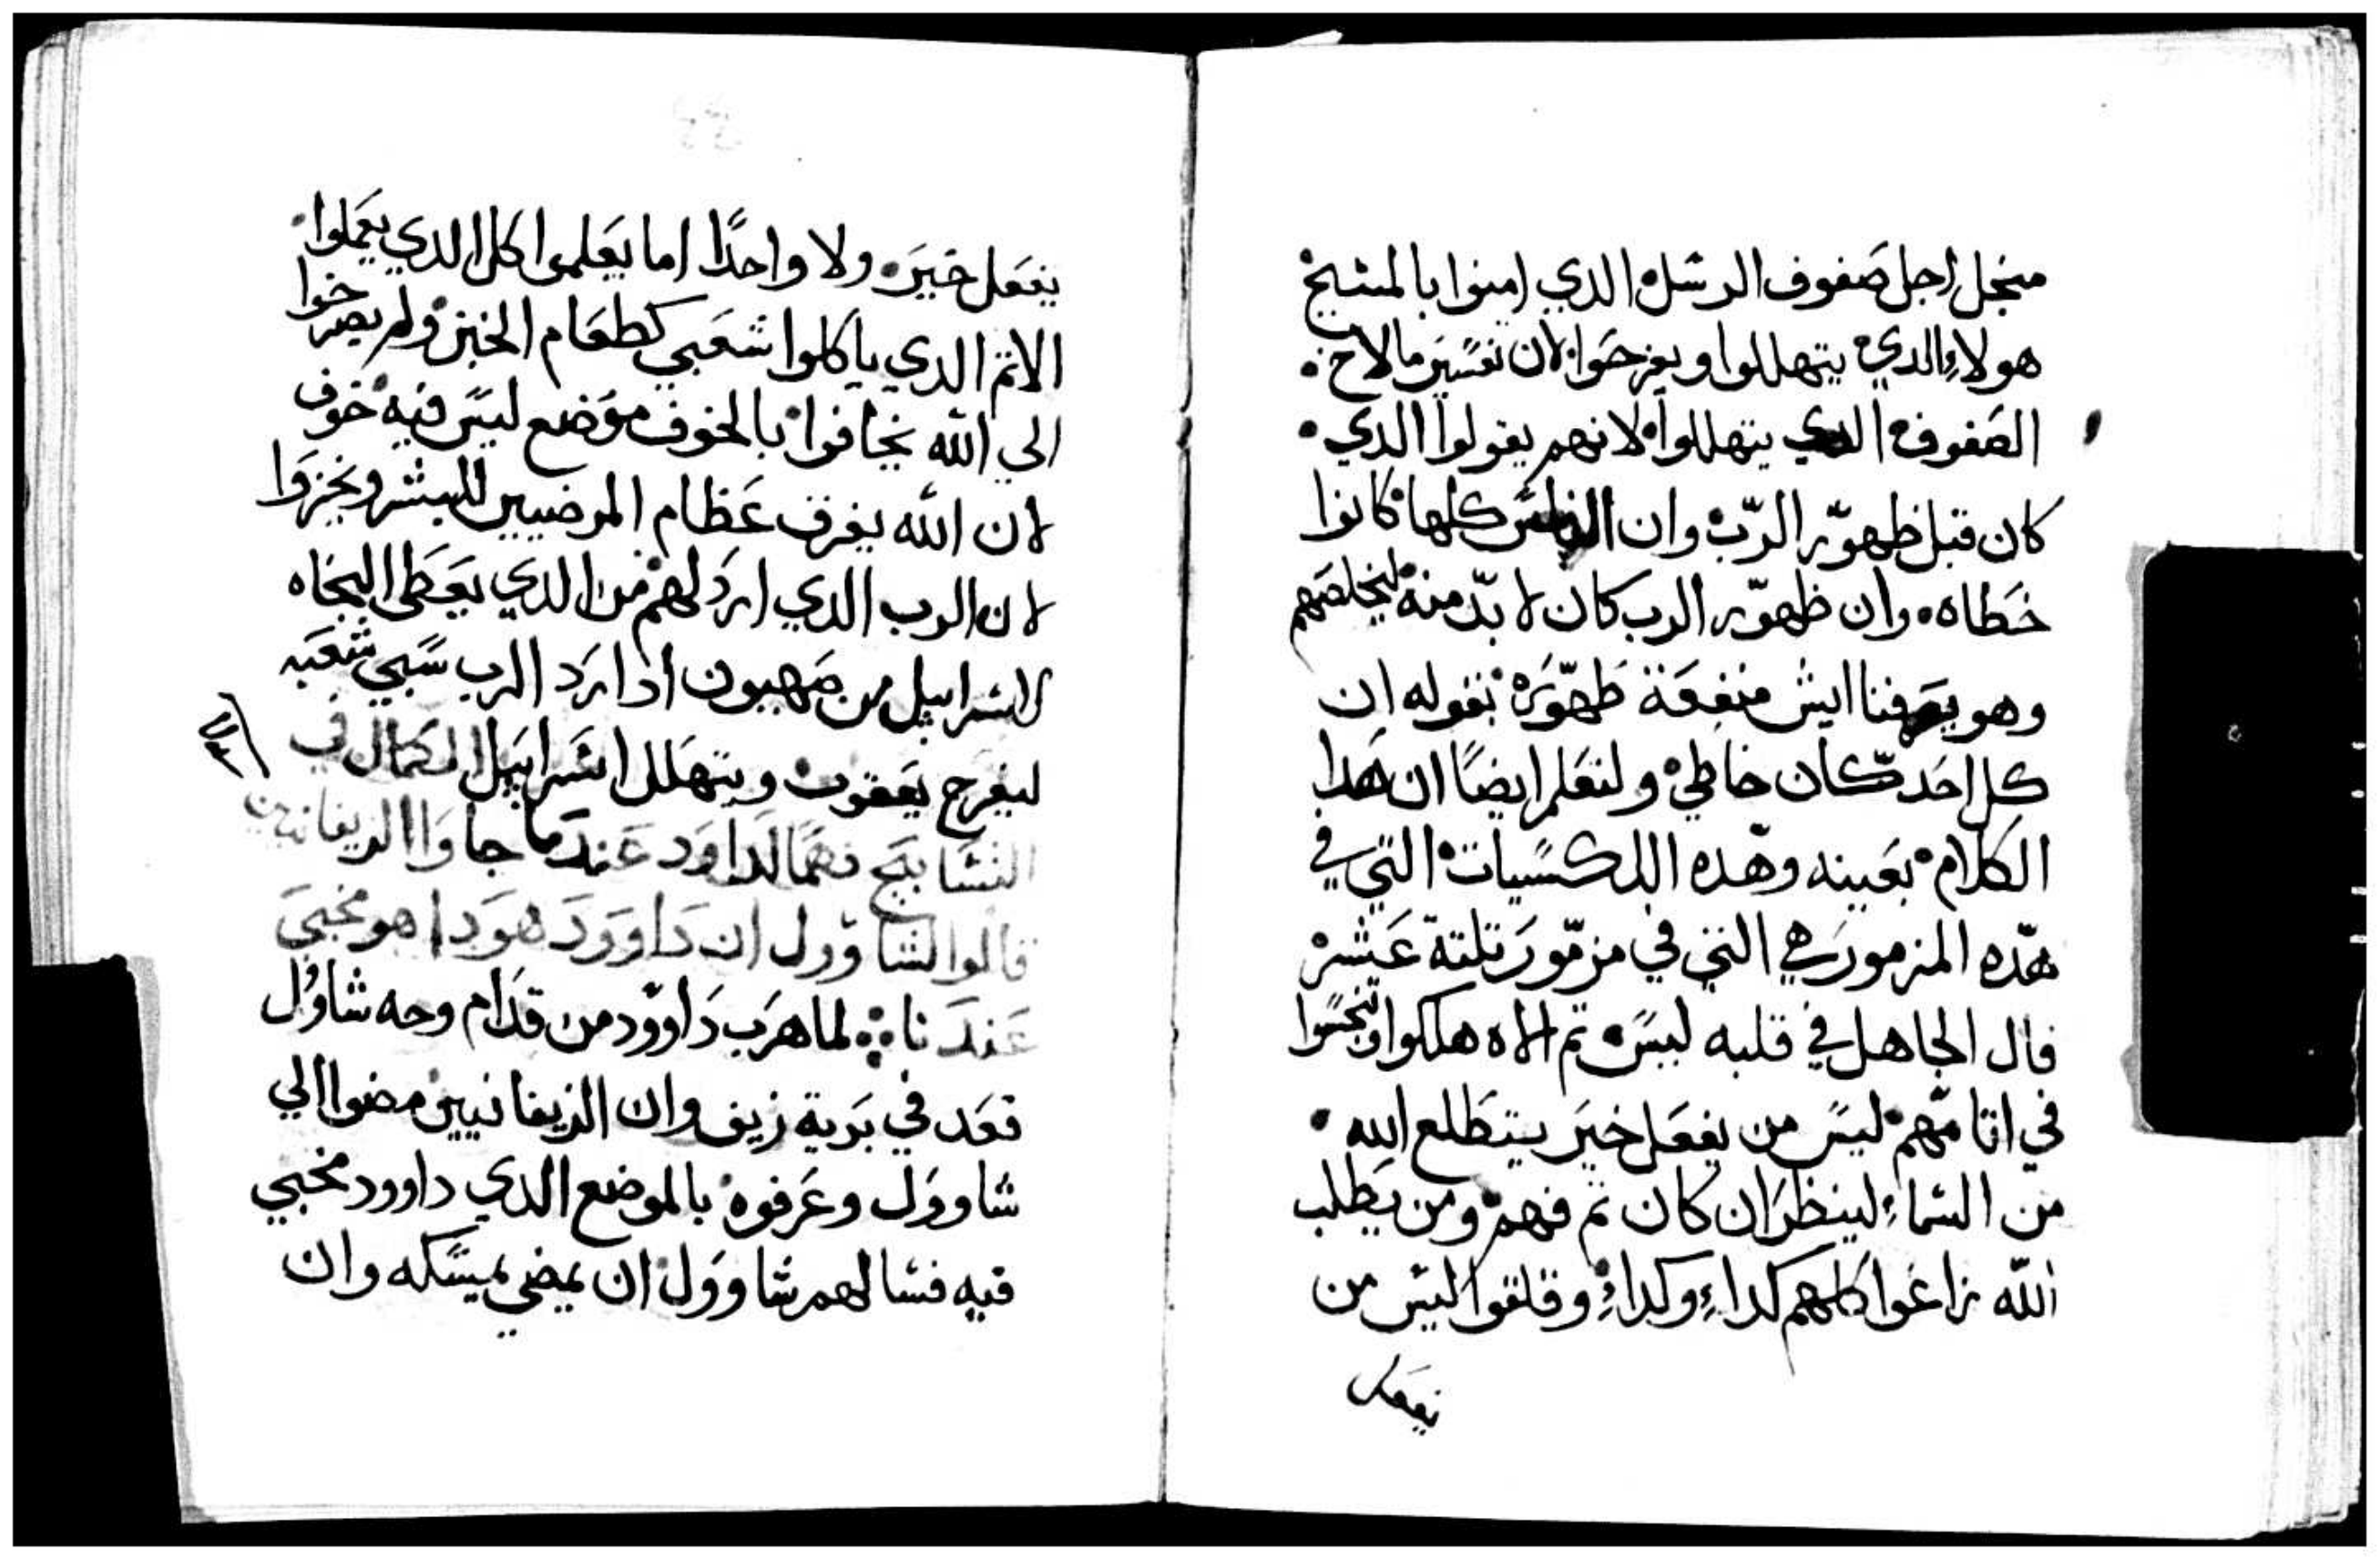 منجل اجل صفوف الرسل الدي امنوا بالمسيح
هولاء الدي يتهللوا ويفرحوا لان تفسير مالاح
الصفوف الدي يتهللوا لانهم يقولوا الدي
كان قبل ظهور الرب وان الناس كلها كانوا
خطاه وان ظهور الرب كان لا بد منه ليخلصهم
وهو يعرفنا ايش منفعة ظهوره بقوله ان
كل احد كان خاطي ولنعلم ايضا ان هدا
الكلام بعينه وهده الدكسيات التي في
هده المزمور هي التي في مزمور تلتة عشر
قال الجاهل في قلبه ليس تم الاه هلكوا وتنجسوا
في اتامهم ليس من يفعل خير يتطلع الله
من السماء لينظر ان كان تم فهم ومن يطلب
الله زاغوا كلهم كداء وكداء وقلقوا ليس من
يفعل
يفعل خير ولا واحدا اما يعلموا كل الدي يعملوا
الاتم الدي ياكلوا شعبي كطعام الخبز ولم يصرخوا
الي الله يخافوا بالخوف موضع ليس فيه خوف
لان الله يفرق عظام المرضيين للبشر ويخزوا
لان الرب الدي ارد لهم من الدي يعطى النجاه
لاسراييل من صهيون ادا ارد الرب سبي شعبه
ليفرح يعقوب ويتهلل اسراييل الكمال في
التسابيح فهما لداود عندما جاوا الزيفانيين
قالوا لشاوول ان داوود هودا هو مخبي
عندنا لما هرب داوود من قدام وجه شاوُل
قعد في برية زيف وان الزيفانيين مضوا الي
شاوول وعرفوه بالموضع الدي داوود مخبي
فيه فسالهم شاوول ان يمضي يمسكه وان